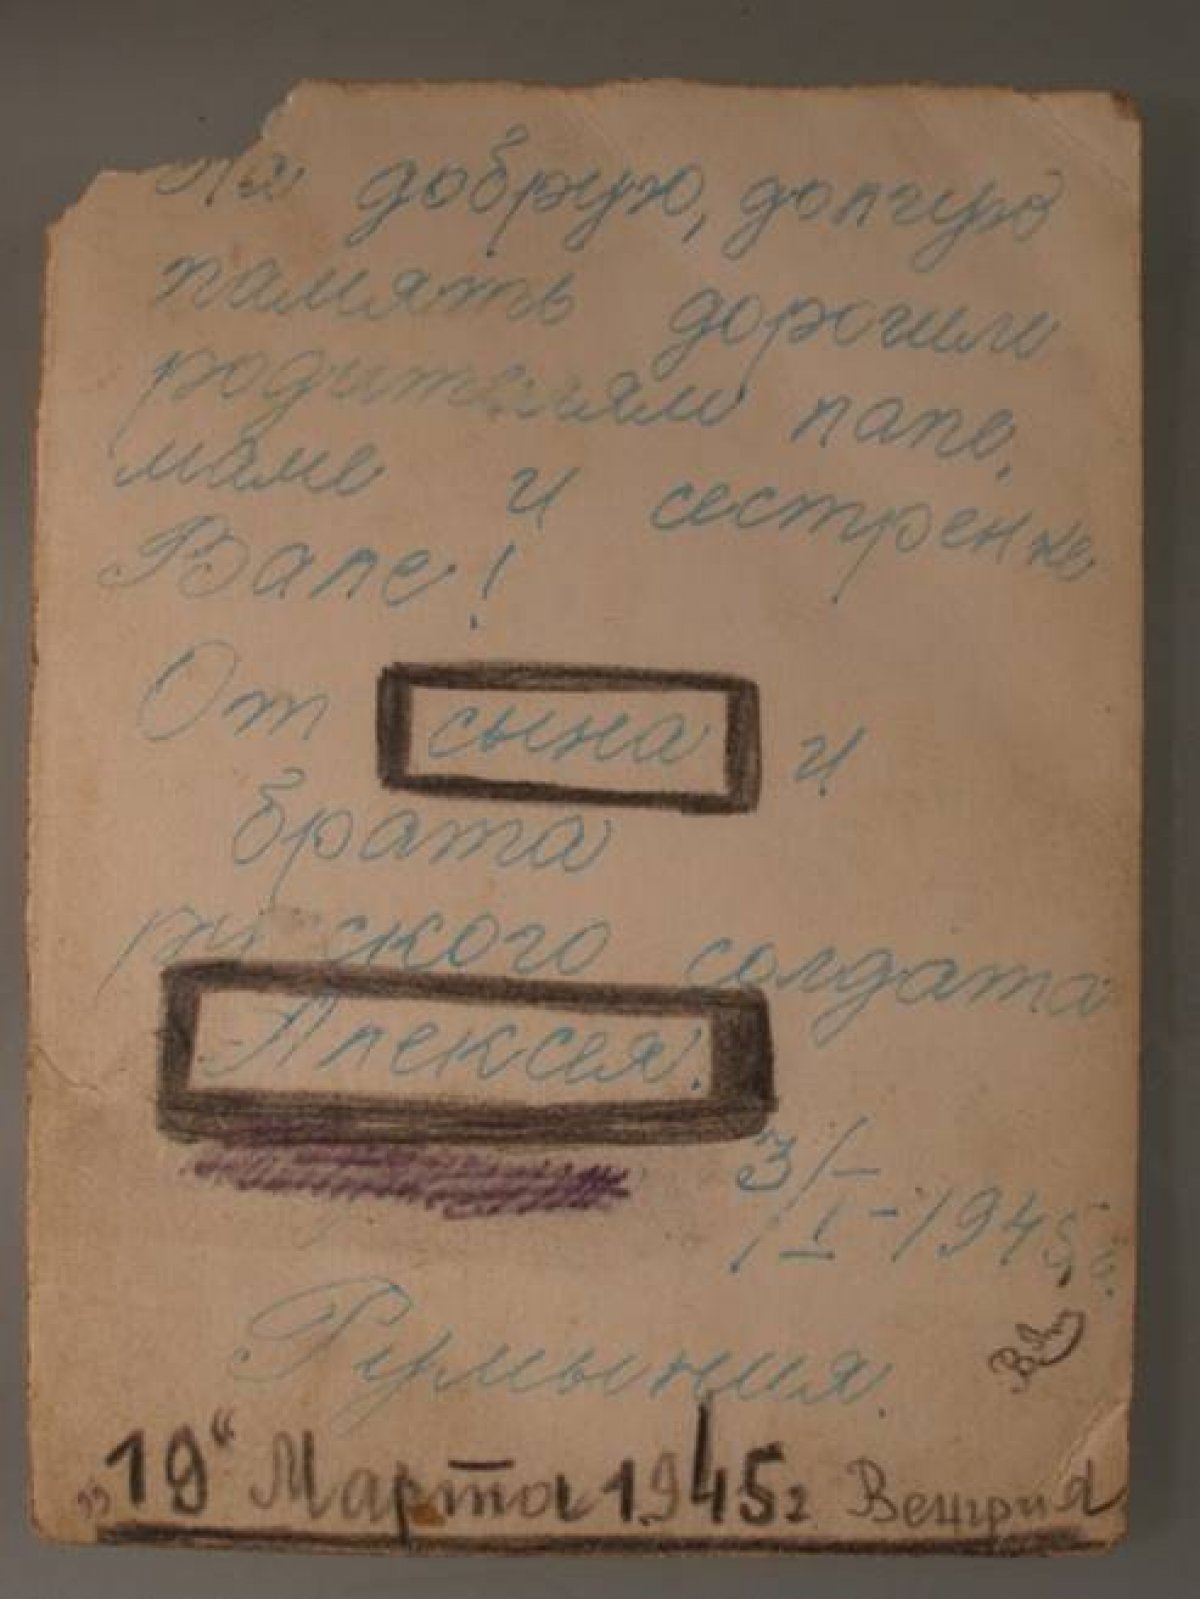 На добрую, долгую
память дорогим
родителям папе,
маме и сестренке
Вале!
От сына и
брата
русского солдата
Алексея!
3/I-1945г.
Румыния.
„19“ Марта 1945г Венгрия